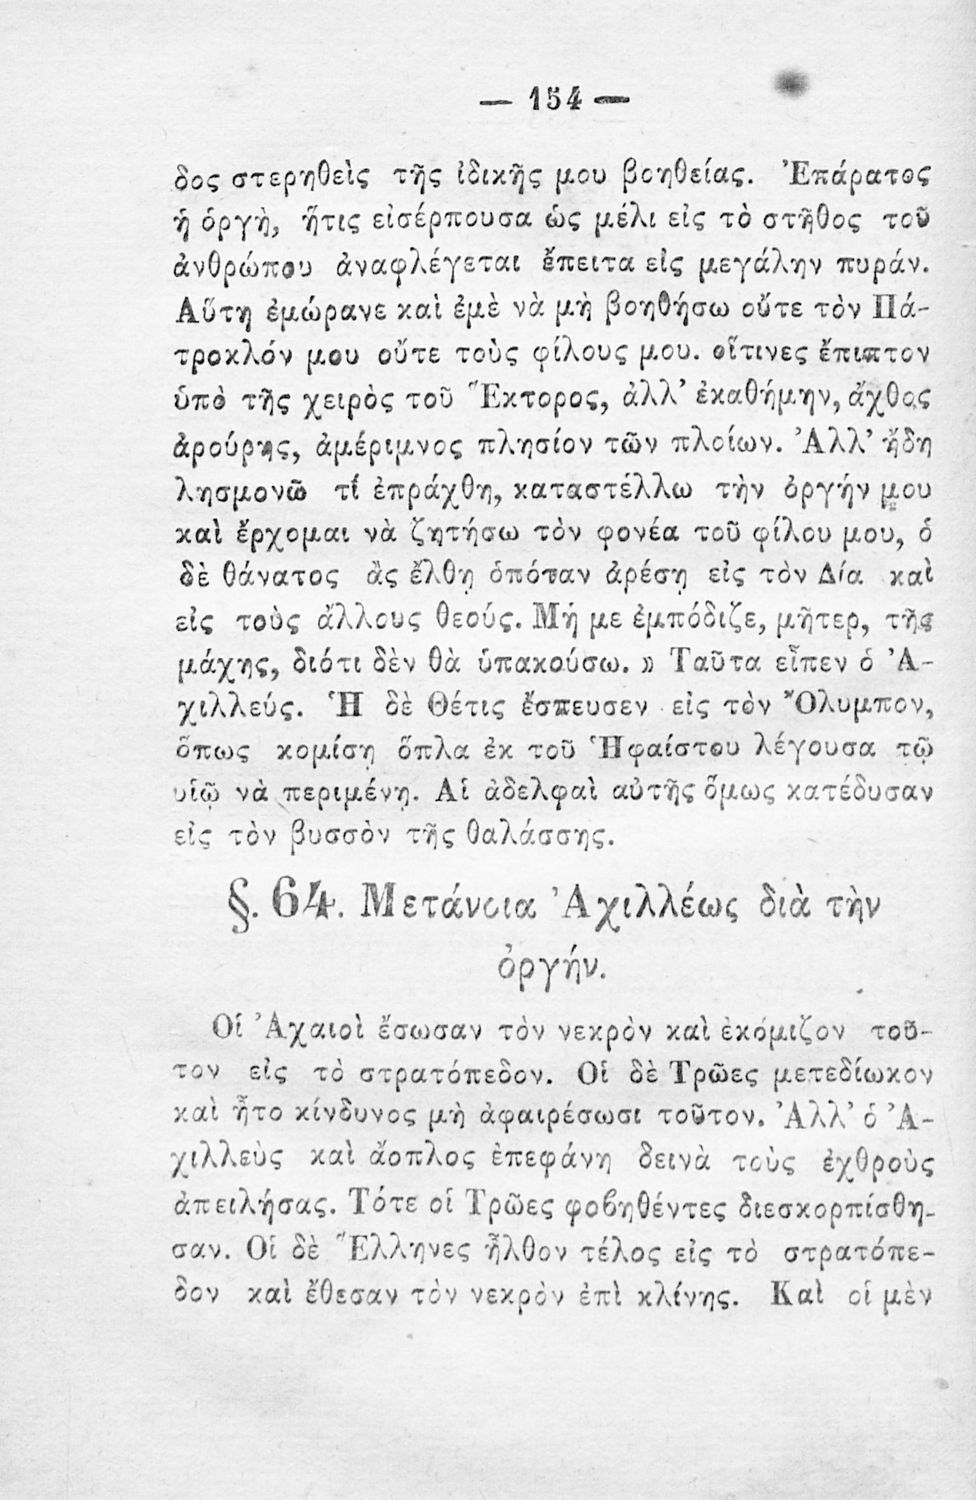 — 154 —
δος στερηθεὶς τῆς ἰδικῆς μου βοηθείας. Ἐπάρατος
ἡ ὀργὴ, ἥτις εἰσέρπουσα ὡς μέλι εἰς τὸ στῆθος τοῦ
ἀνθρώπου ἀναφλέγεται ἔπειτα εἰς μεγάλην πυράν.
Αὕτη ἐμώρανε καὶ ἐμὲ νὰ μὴ βοηθήσω οὔτε τὸν Πά-
τροκλόν μου οὔτε τοὺς φίλους μου. οἵτινες ἔπιπτον
ὑπὸ τῆς χειρὸς τοῦ Ἕκτορος, ἀλλ’ ἐκαθήμην, ἄχθος
ἀρούρης, ἀμέριμνος πλησίον τῶν πλοίων. Ἀλλ’ ἤδη
λησμονῶ τί ἐπράχθη, καταστέλλω τὴν ὀργήν μου
καὶ ἔρχομαι νὰ ζητήσω τὸν φονέα τοῦ φίλου μου, ὁ
δὲ θάνατος ἂς ἔλθῃ ὁπόταν ἀρέσῃ εἰς τὸν Δία καὶ
εἰς τοὺς ἄλλους θεούς. Μή με ἐμπόδιζε, μῆτερ, τῆς
μάχης, διότι δὲν θὰ ὑπακούσω. » Ταῦτα εἶπεν ὁ Ἀ-
χιλλεύς. Ἡ δὲ Θέτις ἔσπευσεν εἰς τὸν Ὄλυμπον,
ὅπως κομίσῃ ὅπλα ἐκ τοῦ Ἡφαίστου λέγουσα τῷ
υἱῷ νὰ περιμένῃ. Αἱ ἀδελφαὶ αὐτῆς ὅμως κατέδυσαν
εἰς τὸν βυσσὸν τῆς θαλάσσης.
§. 64. Μετάνοια Ἀχιλλέως διὰ τὴν
ὀργήν.
Οἱ Ἀχαιοὶ ἔσωσαν τὸν νεκρὸν καὶ ἐκόμιζον τοῦ-
τον εἰς τὸ στρατόπεδον. Οἱ δὲ Τρῶες μετεδίωκον
καὶ ἦτο κίνδυνος μὴ ἀφαιρέσωσι τοῦτον. Ἀλλ’ ὁ Ἀ-
χιλλεὺς καὶ ἄοπλος ἐπεφάνη δεινὰ τοὺς ἐχθροὺς
ἀπειλήσας. Τότε οἱ Τρῶες φοβηθέντες διεσκορπίσθη-
σαν. Οἱ δὲ Ἕλληνες ἦλθον τέλος εἰς τὸ στρατόπε-
δον καὶ ἔθεσαν τὸν νεκρὸν ἐπὶ κλίνης. Καὶ οἱ μὲν